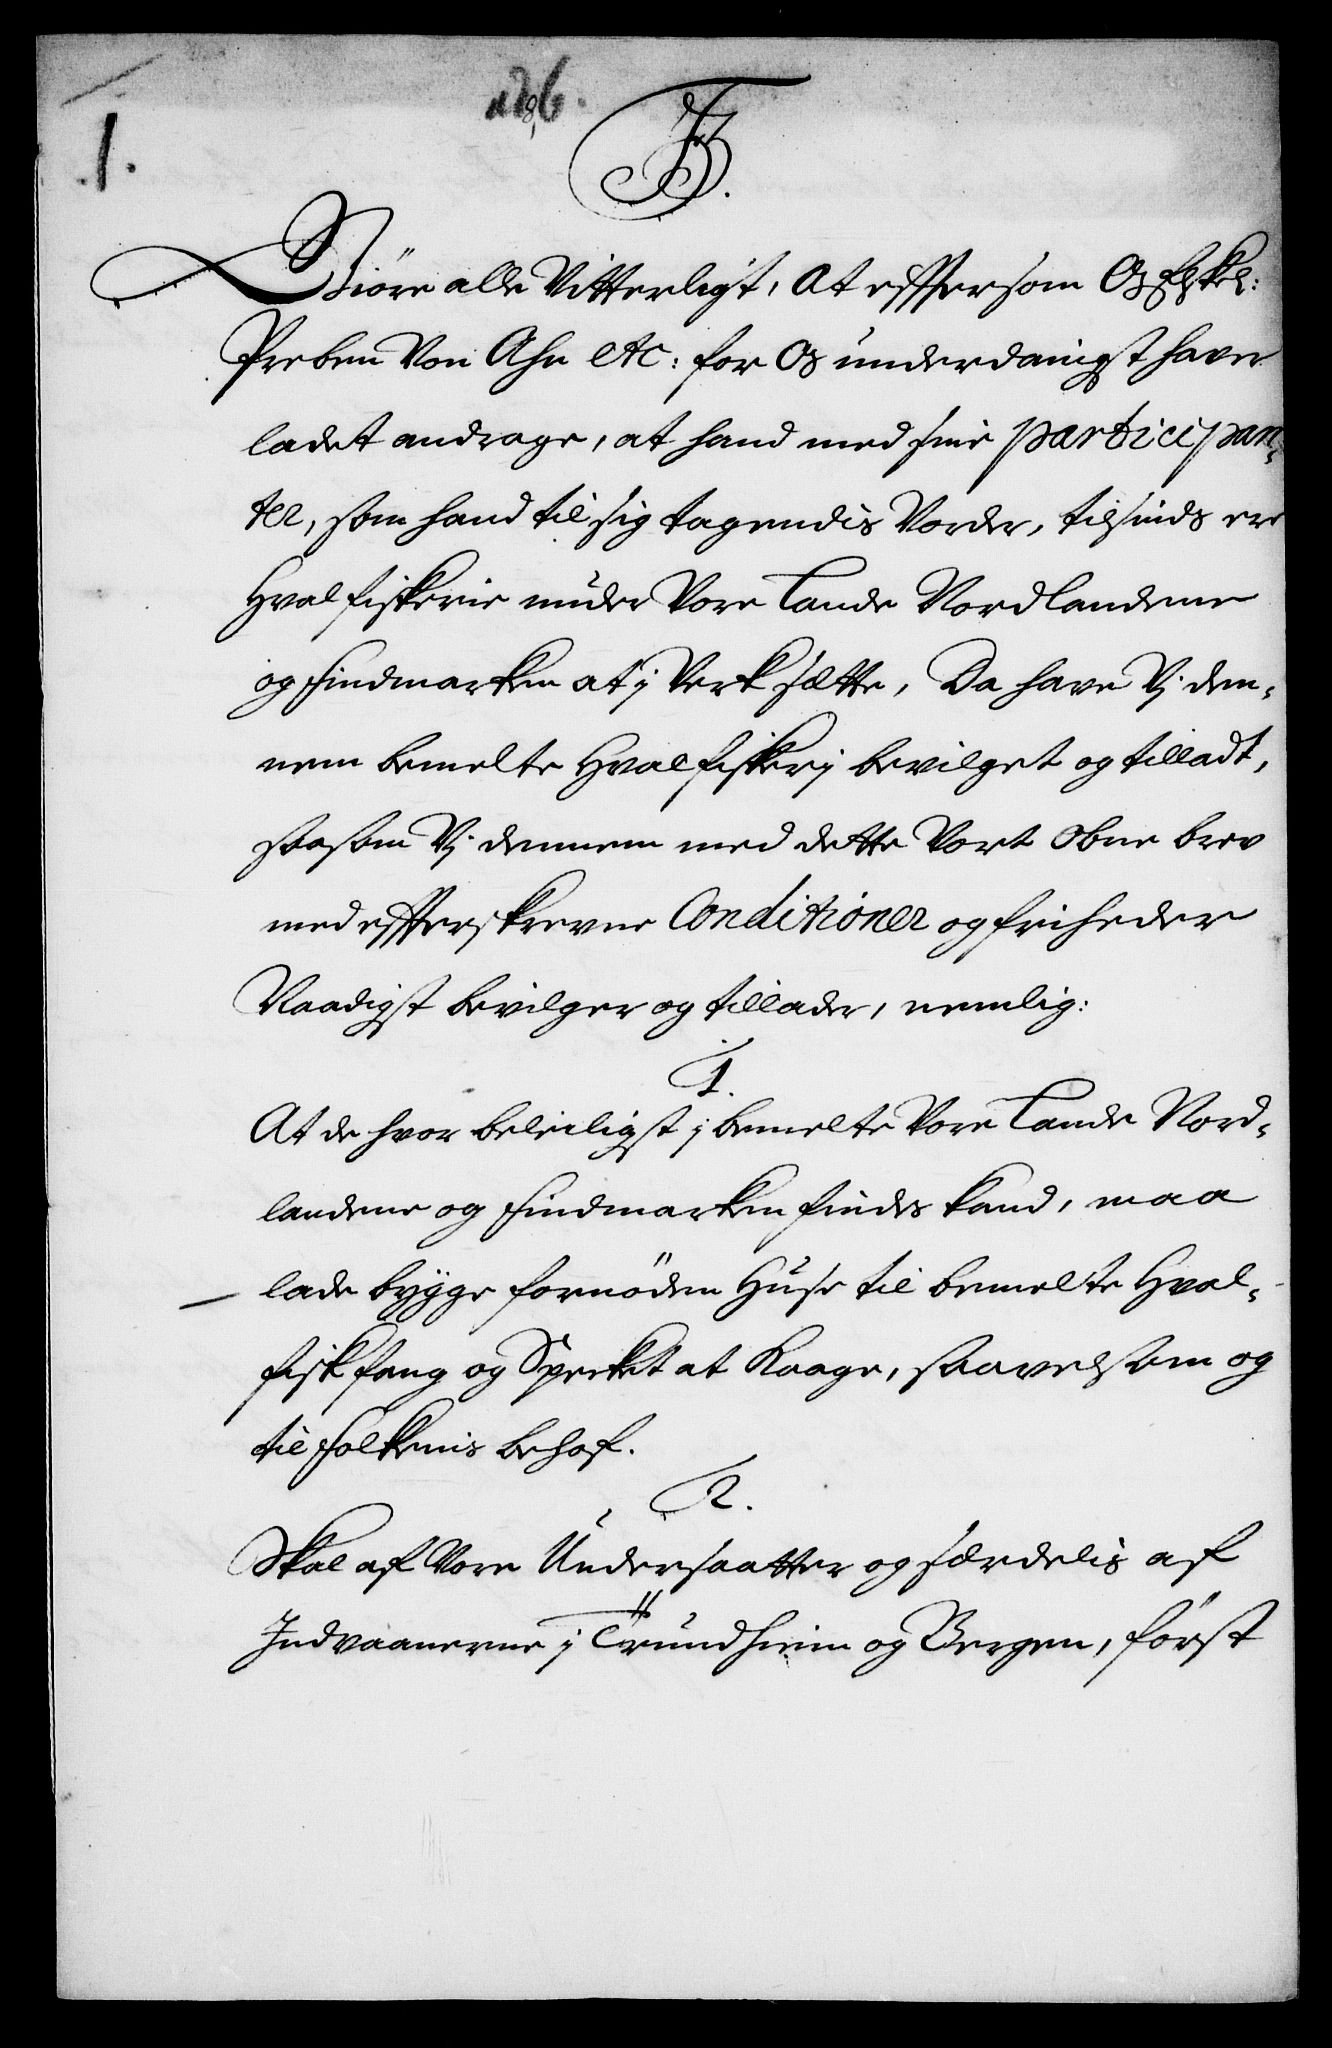 1.
B.
Giöre alle Vitterligt, At effter som Os Elskel:
Preben Von Ahn etc: for Os underdanigst haver
ladet andrage, at hand med sine participan-
ter, som hand til sig tagendis Vorder, tilsinds ere
Hvalfiskerie under Vore Lande Nordlandene
og Findmarken at i Verk sætte, Da have Vj den-
nem bemelte Hvalfiskerj bevilget og tilladt,
saasom Vj dennem med dette Vort Obne brev
med effterskrevne Conditioner og friheder
Naadigst bevilger og tillader, nemlig:
1.
At de hvor beleiligst i bemelte Vore Lande Nord-
landene og Findmarken findes kand, maa
lade bygge fornöden Huse til bemelte Hval-
fiskfang og Specket at Kaage, saavelsom og
til Folkenis behof.
2.
Skal af Vore Undersaatter og særdelis af
Indvaanerne i Trundhiem og Bergen, först